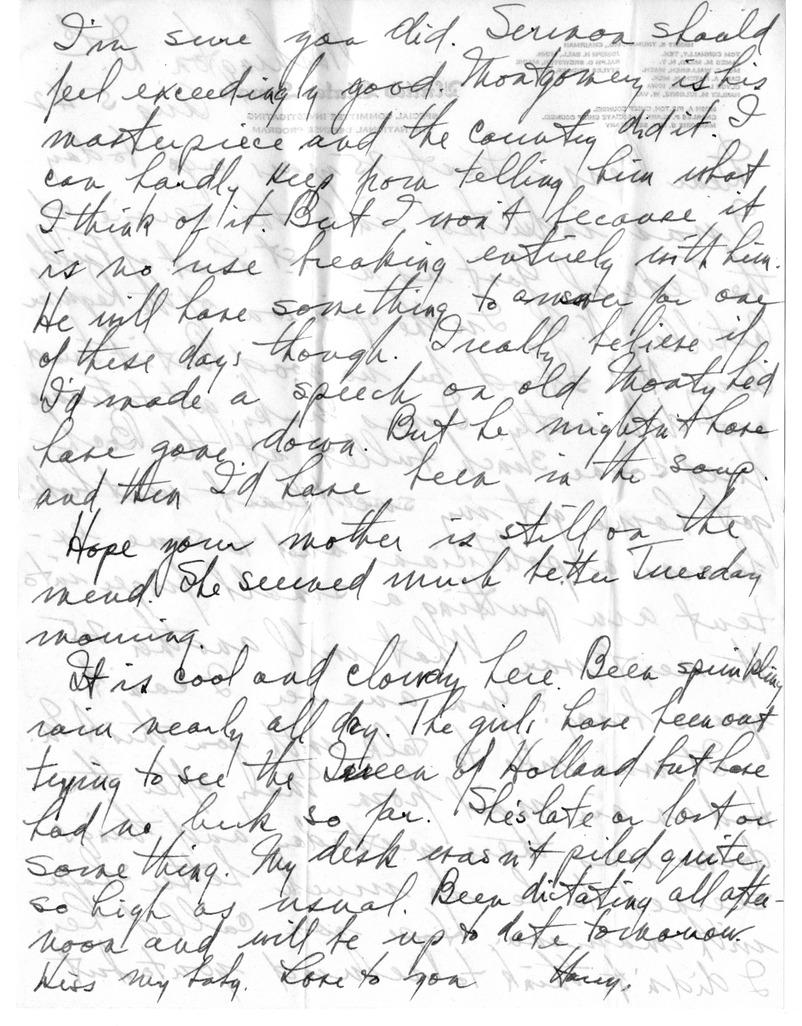 I'm sure you did. Sermon should
feel exceedingly good. Montgomery is his
masterpiece and the country did it. I
can hardly keep from telling him what
I think of it. But I won't because it
is no use breaking entirely with him.
He will have something to answer for one
of these days though. I really believe if
I'd made a speech on old Monty he'd
have gone down. But he mightn't have
and then I'd have been in the soup.
Hope your mother is still on the
mend. She seemed much better Tuesday
morning.
It is cool and cloudy here. Been sprinkling
rain nearly all day. The girls have been out
trying to see the Queen of Holland but have
had no luck so far. She's late or lost or
something. My desk wasn't piled quite
so high as usual. Been dictating all after-
noon and will be up to date tomorrow.
Kiss my baby. Love to you Harry.